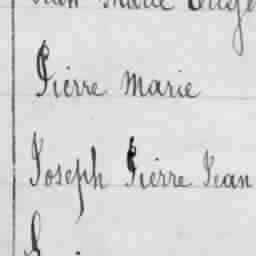 Marie
Pierre Marie
Joseph Pierre Jean